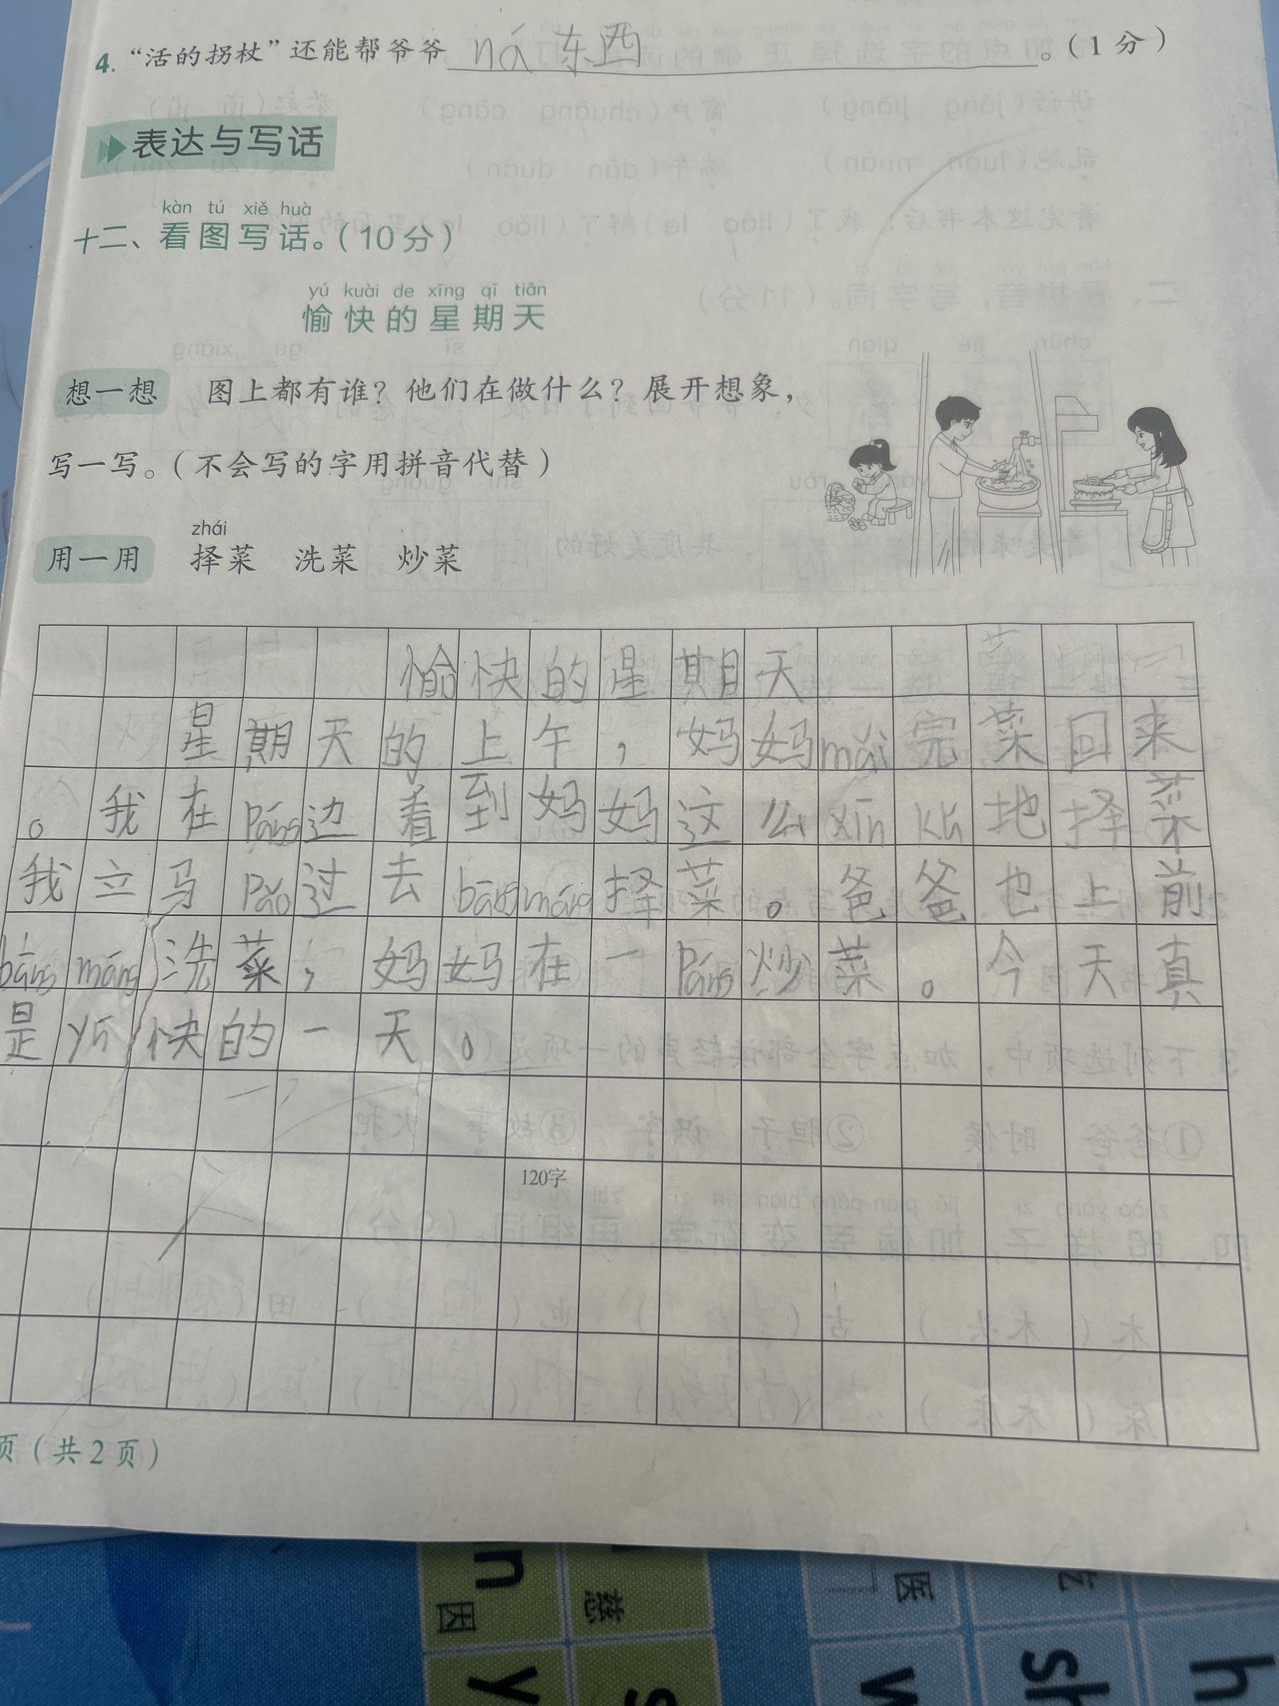 4. “活的拐杖”还能帮爷爷 ná 东西 。（1分）
表达与写话
kàn tú xiě huà
十二、看图写话。（10分）
yú kuài de xīng qī tiān
愉快的星期天
想一想 图上都有谁？他们在做什么？展开想象，
写一写。（不会写的字用拼音代替）
zhái
用一用 择菜 洗菜 炒菜
愉快的星期天
星期天的上午，妈妈mǎi完菜回来
。我在Páng边看到妈妈这么xīn kǔ地择菜
我立马Pǎo过去bāng máng择菜。爸爸也上前
bāng máng洗菜，妈妈在一Páng炒菜。今天真
是yú快的一天。
120字
页（共2页）
n 因
慈
医
y
w
sh
h